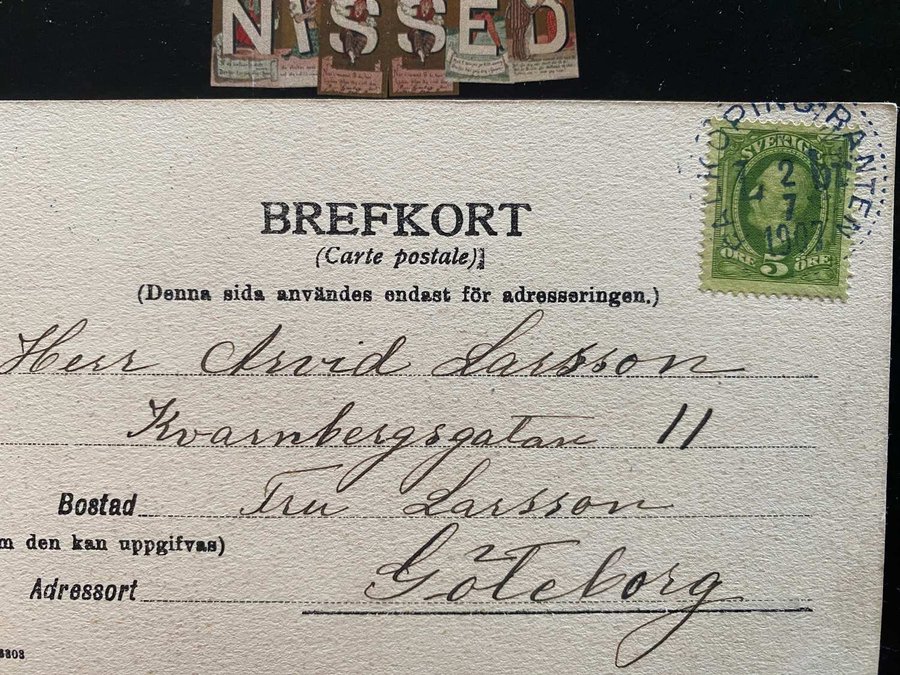 NISSED
SVERIGE
2
7
1907
ÖRE 5 ÖRE
BREFKORT
(Carte postale)
(Denna sida användes endast för adresseringen.)
Herr Arvid Larsson
Kvarnbergsgatan 11
Bostad Fru Larsson
m den kan uppgifvas)
Adressort Göteborg